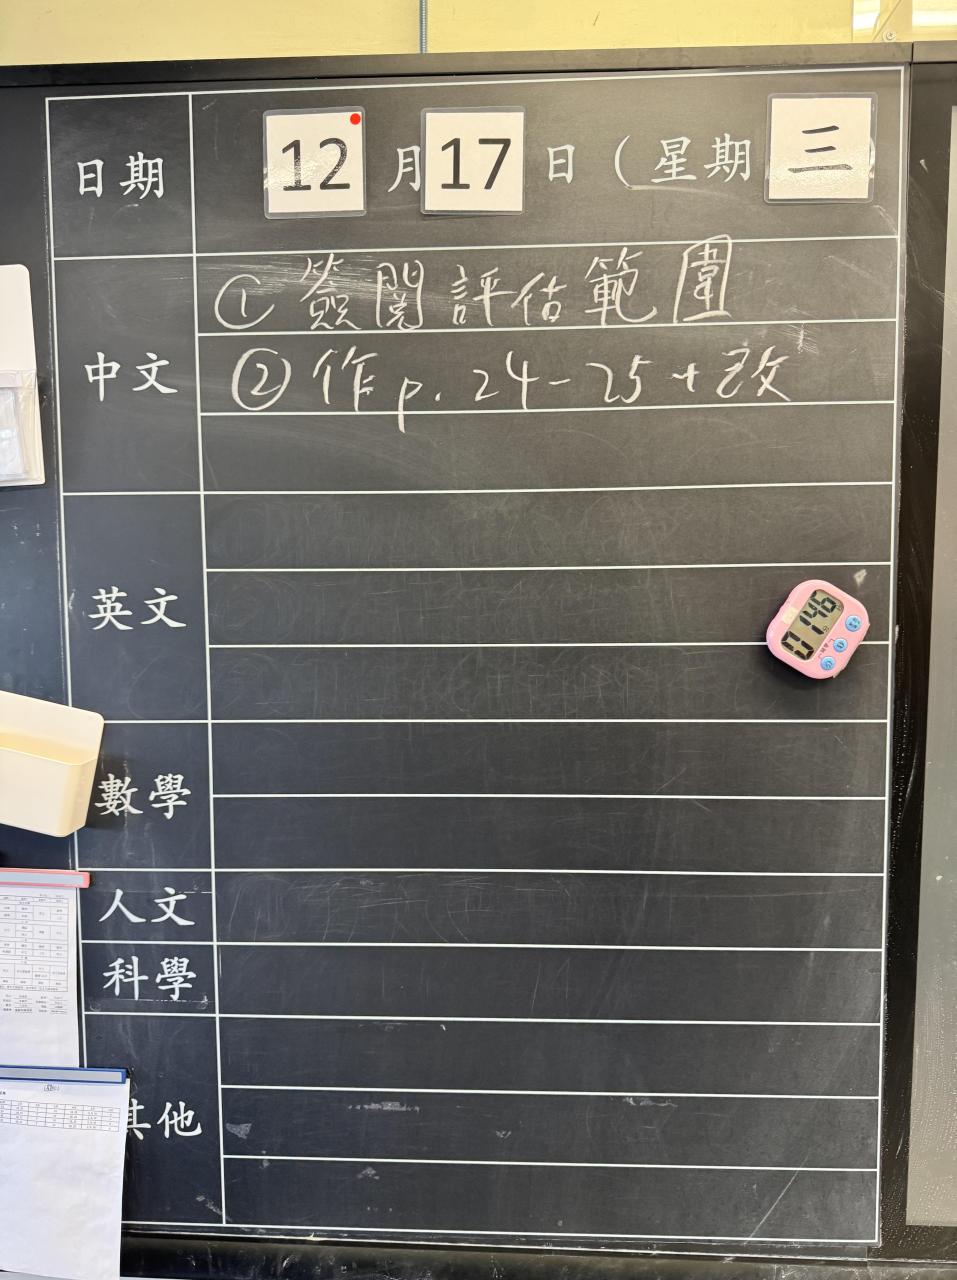 日期 12月17日（星期三）
中文
①簽閱評估範圍
②作p.24-25+改
英文
數學
人文
科學
其他